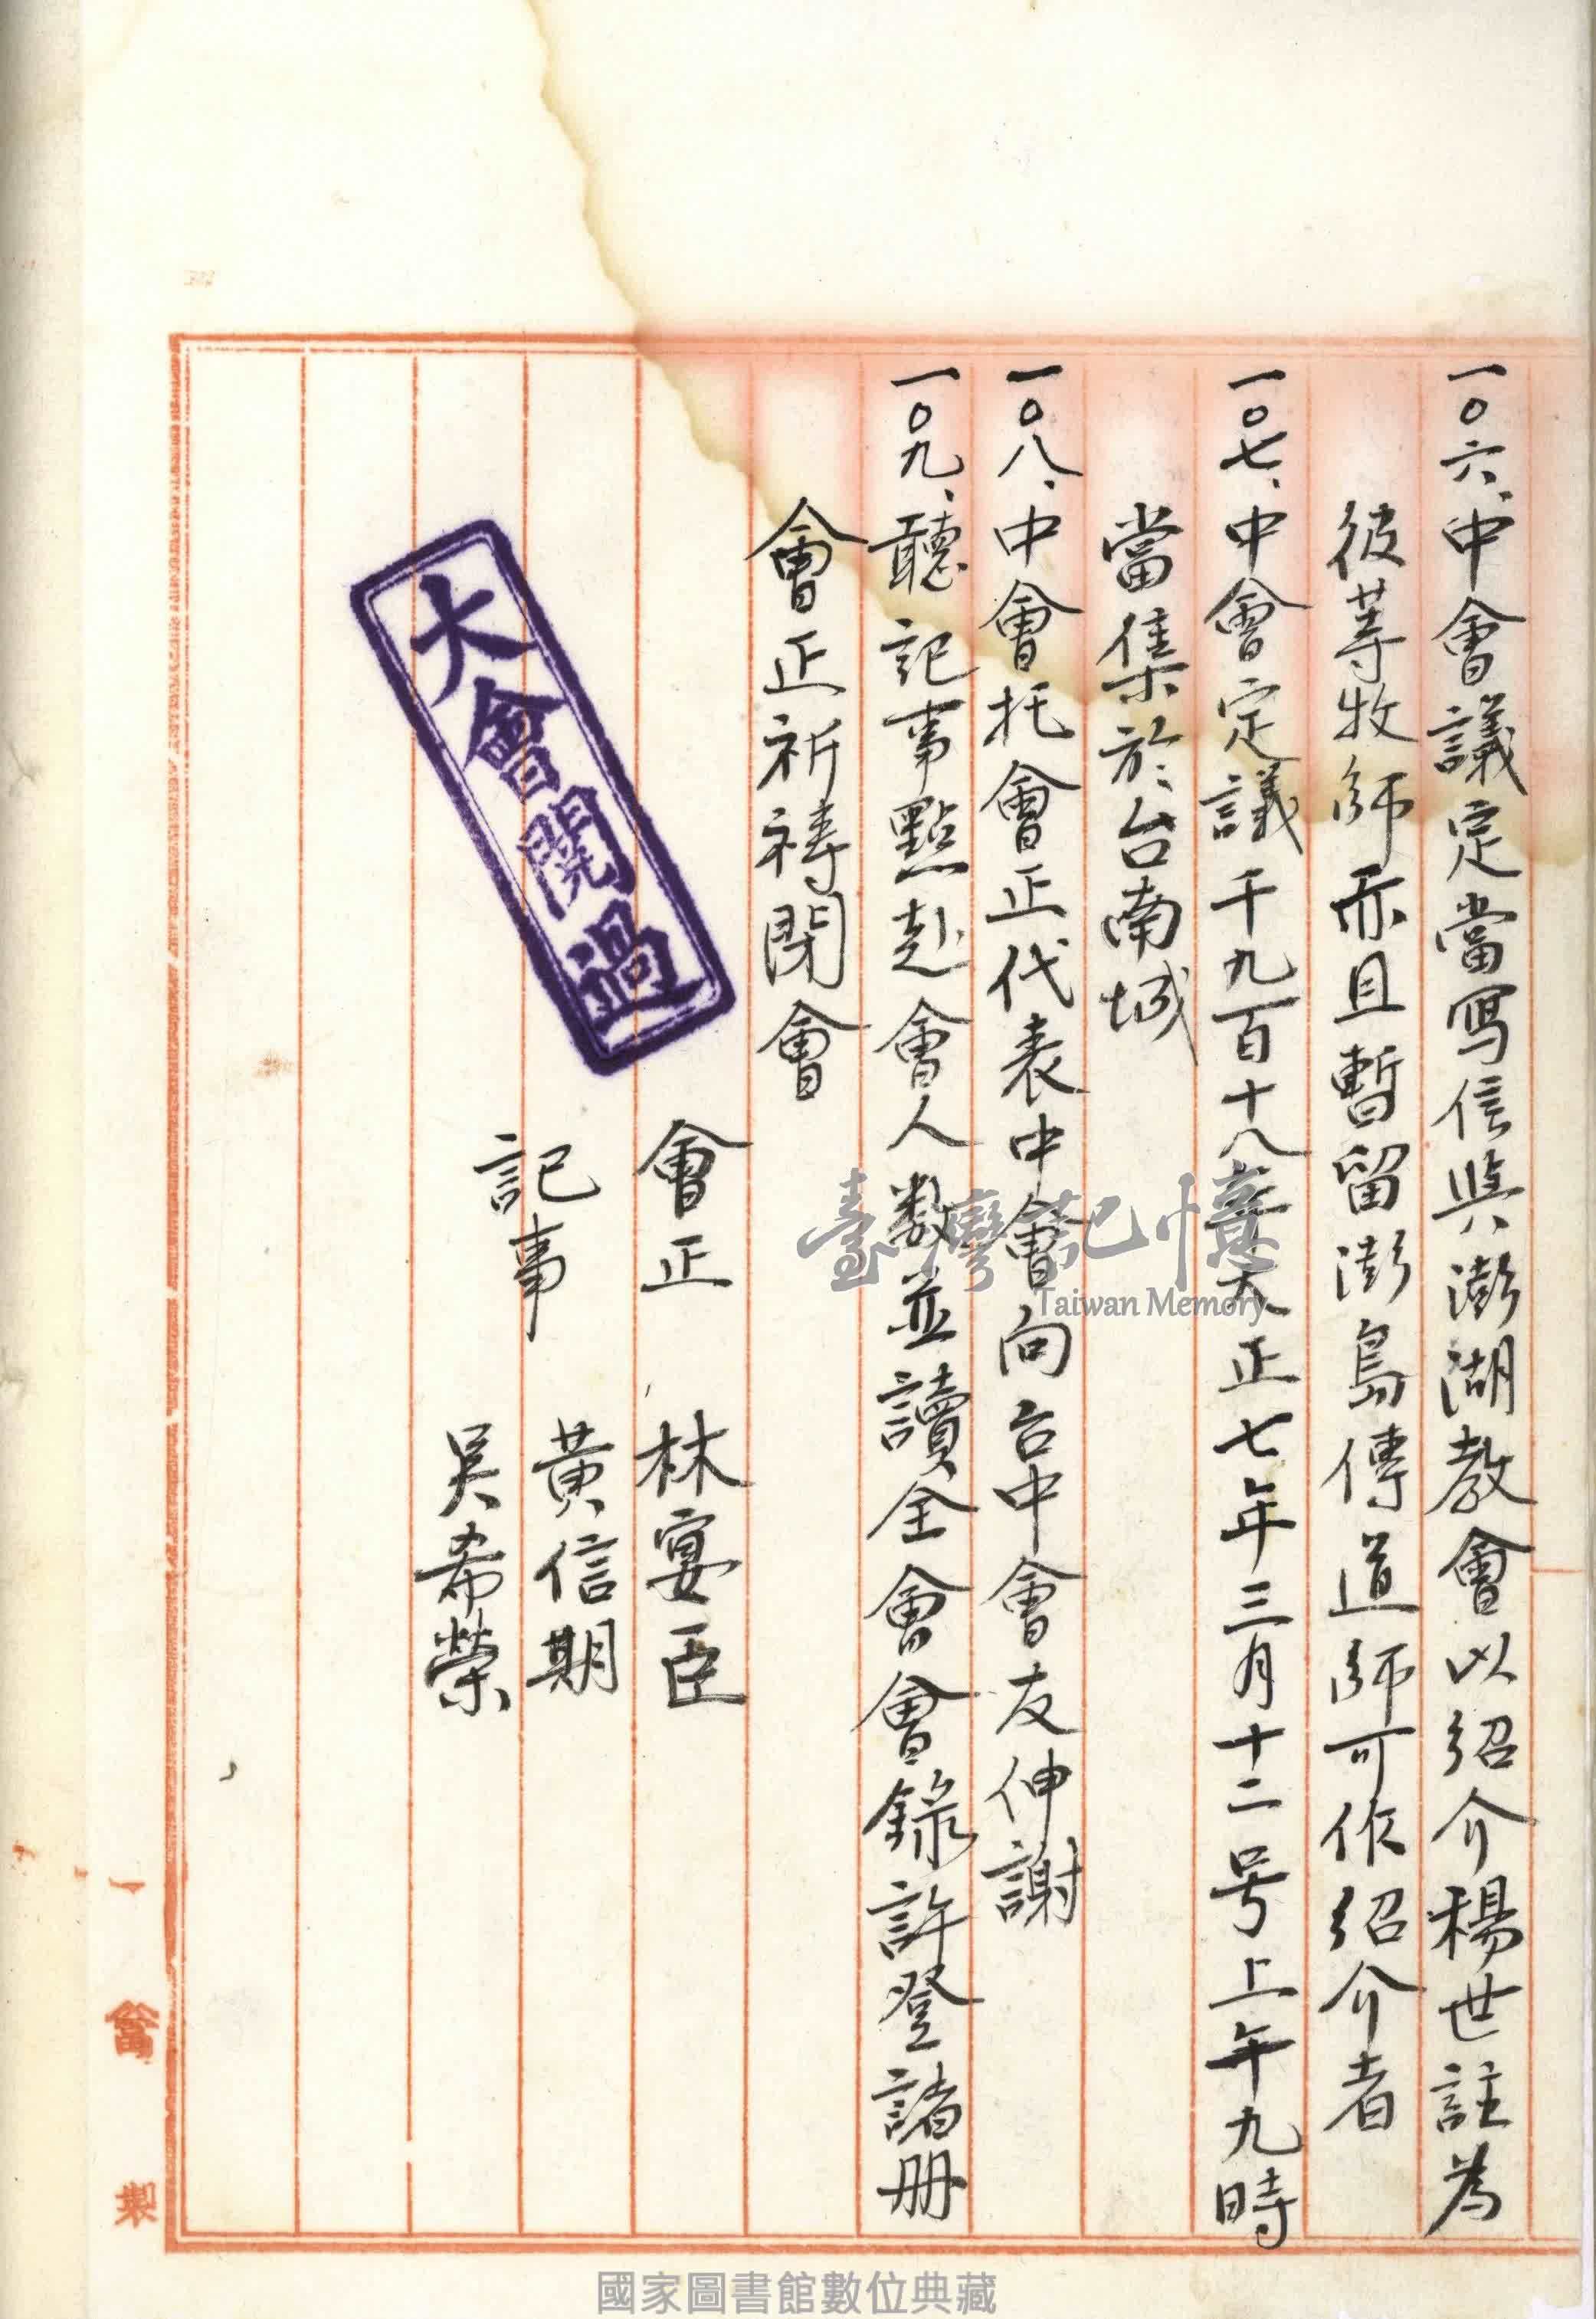 一〇六、中會議定當寫信與澎湖教會以紹介楊世註為
彼等牧師亦且暫留澎島傳道師可作紹介者
一〇七、中會定議千九百十八年大正七年三月十二号上午九時
當集於台南城
一〇八、中會托會正代表中會向台中會友伸謝
一〇九、聽記事點赴會人数並讀全會會錄許登諸册
會正祈禱閉會
會正 林宴臣
記事 黃信期
吳希榮
大會閱過
臺灣記憶
Taiwan Memory
製
國家圖書館數位典藏